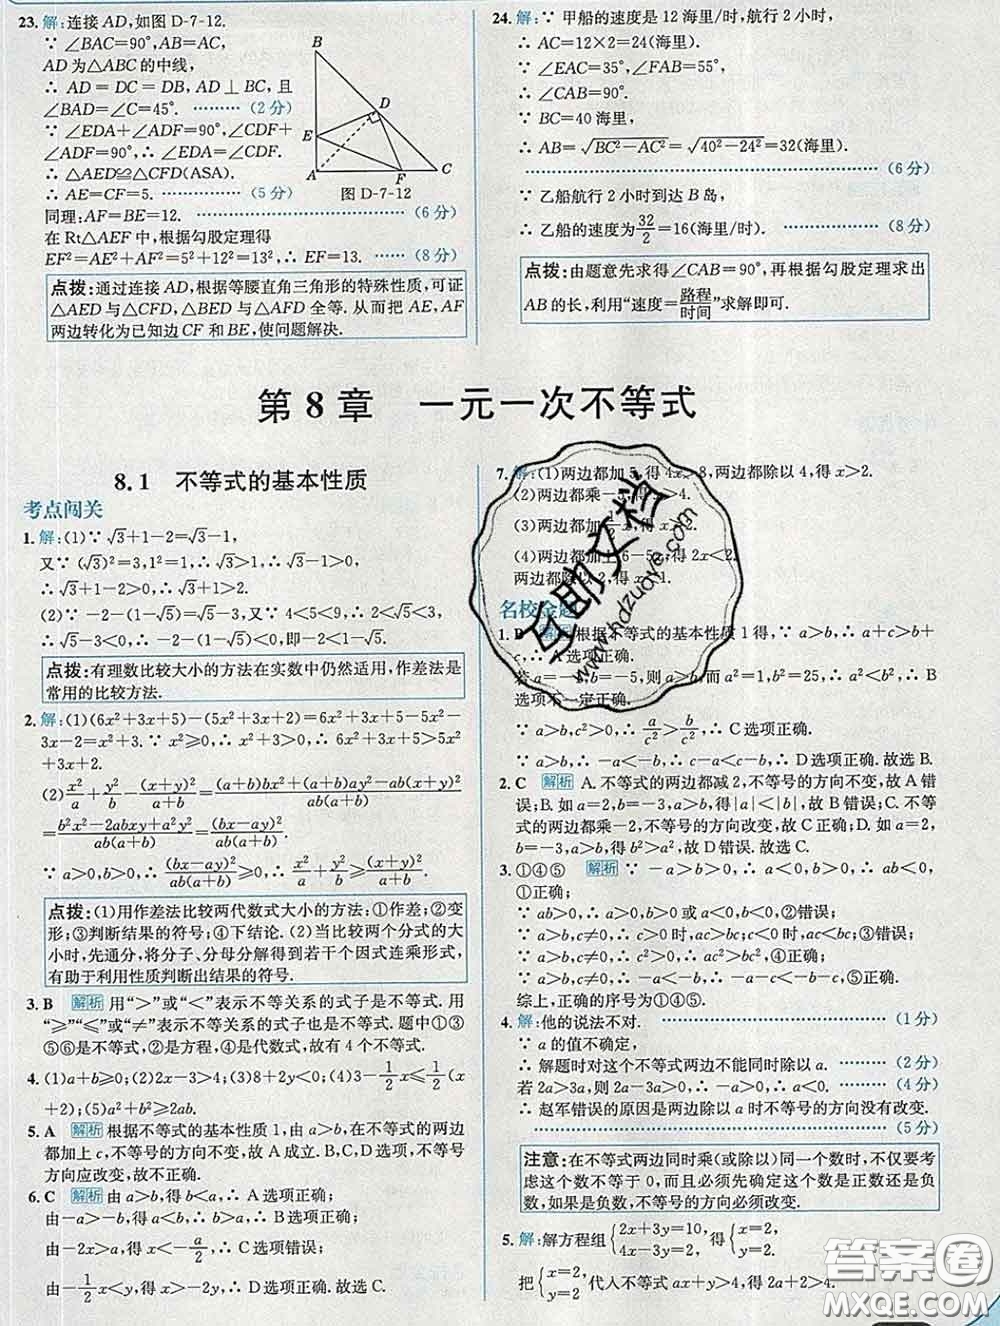 23. 解:连接 AD,如图 D-7-12.
∵ ∠BAC=90°,AB=AC,
AD 为△ABC 的中线,
∴ AD = DC = DB, AD ⊥ BC, 且
∠BAD=∠C=45°. ……… (2 分)
∵ ∠EDA+∠ADF=90°,∠CDF+
∠ADF=90°,∴ ∠EDA=∠CDF.
∴ △AED≌△CFD(ASA).
∴ AE=CF=5. ……… (5 分)
B
D
E
A
F
C
图 D-7-12
同理:AF=BE=12. ……… (6 分)
在 Rt△AEF 中,根据勾股定理得
EF²=AE²+AF²=5²+12²=13²,∴ EF=13. ……… (8 分)
点拨:通过连接 AD,根据等腰直角三角形的特殊性质,可证
△AED 与△CFD,△BED 与△AFD 全等. 从而把 AE,AF
两边转化为已知边 CF 和 BE,使问题解决.
24. 解:∵ 甲船的速度是 12 海里/时,航行 2 小时,
∴ AC=12×2=24(海里).
∵ ∠EAC=35°,∠FAB=55°,
∴ ∠CAB=90°.
∵ BC=40 海里,
∴ AB=√(BC²-AC²)=√(40²-24²)=32(海里).
……… (6 分)
∵ 乙船航行 2 小时到达 B 岛,
∴ 乙船的速度为32/2=16(海里/时). ……… (8 分)
点拨:由题意先求得∠CAB=90°,再根据勾股定理求出
AB 的长,利用“速度=路程/时间”求解即可.
第 8 章 一元一次不等式
8.1 不等式的基本性质
考点闯关
1. 解:(1)∵ √3+1-2=√3-1,
又∵ (√3)²=3,1²=1,∴ √3>1,
∴ √3+1-2>0,∴ √3+1>2.
(2)∵ -2-(1-√5)=√5-3,又∵ 4<5<9,∴ 2<√5<3,
∴ √5-3<0,∴ -2-(1-√5)<0,∴ -2<1-√5.
点拨:有理数比较大小的方法在实数中仍然适用,作差法是
常用的比较方法.
2. 解:(1)(6x²+3x+5)-(5x²+3x+2)=6x²+3x+5-5x²-
3x-2=x²+3. ∵ x²≥0,∴ x²+3>0,∴ 6x²+3x+5>5x²+
3x+2.
(2)x²/a+y²/b-(x+y)²/(a+b)=((a+b)bx²+(a+b)ay²-ab(x+y)²)/(ab(a+b))
=(b²x²-2abxy+a²y²)/(ab(a+b))=(bx-ay)²/(ab(a+b)).
∵ a>0,b>0,∴ (bx-ay)²/(ab(a+b))≥0,∴ x²/a+y²/b≥(x+y)²/(a+b).
点拨:(1)用作差法比较两代数式大小的方法:①作差;②变
形;③判断结果的符号;④下结论. (2)当比较两个分式的大
小时,先通分,将分子、分母分解得到若干个因式连乘形式,
有助于利用性质判断出结果的符号.
3. B 解析 用“>”或“<”表示不等关系的式子是不等式. 用
“≥”“≤”或“≠”表示不等关系的式子也是不等式. 题中①③
⑤⑥是不等式,②是方程,④是代数式,故有 4 个不等式.
4. (1)a+b≥0;(2)2x-3>4;(3)8+2y<0;(4)3-1/2x≤1/2(x
+2);(5)a²+b²≥2ab.
5. A 解析 根据不等式的基本性质 1,由 a>b,在不等式的两边
都加上 c,不等号的方向不变,故 A 成立. B、C、D 选项,不等号
方向应改变,故不正确.
6. C 解析 由 a>b,得 b<a,∴ A 选项正确;
由-a>-b,得 b>a,∴ B 选项正确;
由-2x>a,得 x<-a/2,∴ C 选项错误;
由-1/2x<y,得 x>-2y,∴ D 选项正确. 故选 C.
7. 解:(1)两边都加 5,得 4x>8,两边都除以 4,得 x>2.
(2)两边都乘-5,得 x>4.
(3)两边都加 x,得
(4)两边都加上 6-5x,得 2x<2.
两边都除以 2,得 x<1.
名校金题
1. B 解析 根据不等式的基本性质 1 得,∵ a>b,∴ a+c>b+
c,∴ A 选项正确.
若 a= b=-5,则 a>b,而 a²=1,b²=25,∴ B
选项不一定正确.
∵ a>b,c²>0,∴ a/c²>b/c²,∴ C 选项正确.
∵ a>b,∴ -a<-b,∴ c-a<c-b,∴ D 选项正确. 故选 B.
2. C 解析 A. 不等式的两边都减 2,不等号的方向不变,故 A 错
误;B. 如 a=2,b=-3,a>b,得|a|<|b|,故 B 错误;C. 不等
式的两边都乘-2,不等号的方向改变,故 C 正确;D. 如 a=2,
b=-3,a>b,得 a²<b²,故 D 错误. 故选 C.
3. ①④⑤ 解析 ∵ -a>b>0,∴ a<0,b>0,∴ ab<0,
①正确;
∵ ab>0,∴ a>0,b>0 或 a<0,b<0,②错误;
∵ a>b,c≠0,∴ c>0 时,ac>bc;c<0 时,ac<bc,③错误;
∵ a>b,c≠0,∴ c²>0,∴ ac²>bc²,④正确;
∵ a>b,c≠0,∴ -a<-b,∴ -a-c<-b-c,⑤正确.
综上,正确的序号为①④⑤.
4. 解:他的说法不对. ……… (1 分)
∵ a 的值不确定,
∴ 解题时对这个不等式两边不能同时除以 a. ……… (2 分)
若 2a>3a,则 2a-3a>0,∴ -a>0,∴ a<0. ……… (4 分)
∴ 赵军错误的原因是两边除以 a 时不等号的方向没有改变.
……… (5 分)
注意:在不等式两边同时乘(或除以)同一个数时,不仅要考
虑这个数不等于 0,而且必须先确定这个数是正数还是负
数,如果是负数,不等号的方向必须改变.
5. 解:解方程组{2x+3y=10, 4x-3y=2, 得{x=2, y=2.
把{x=2, y=2 代入不等式 ax+y>4,得 2a+2>4.
互助文档
www.hdzuoye.com
答案圈
MXQE.COM